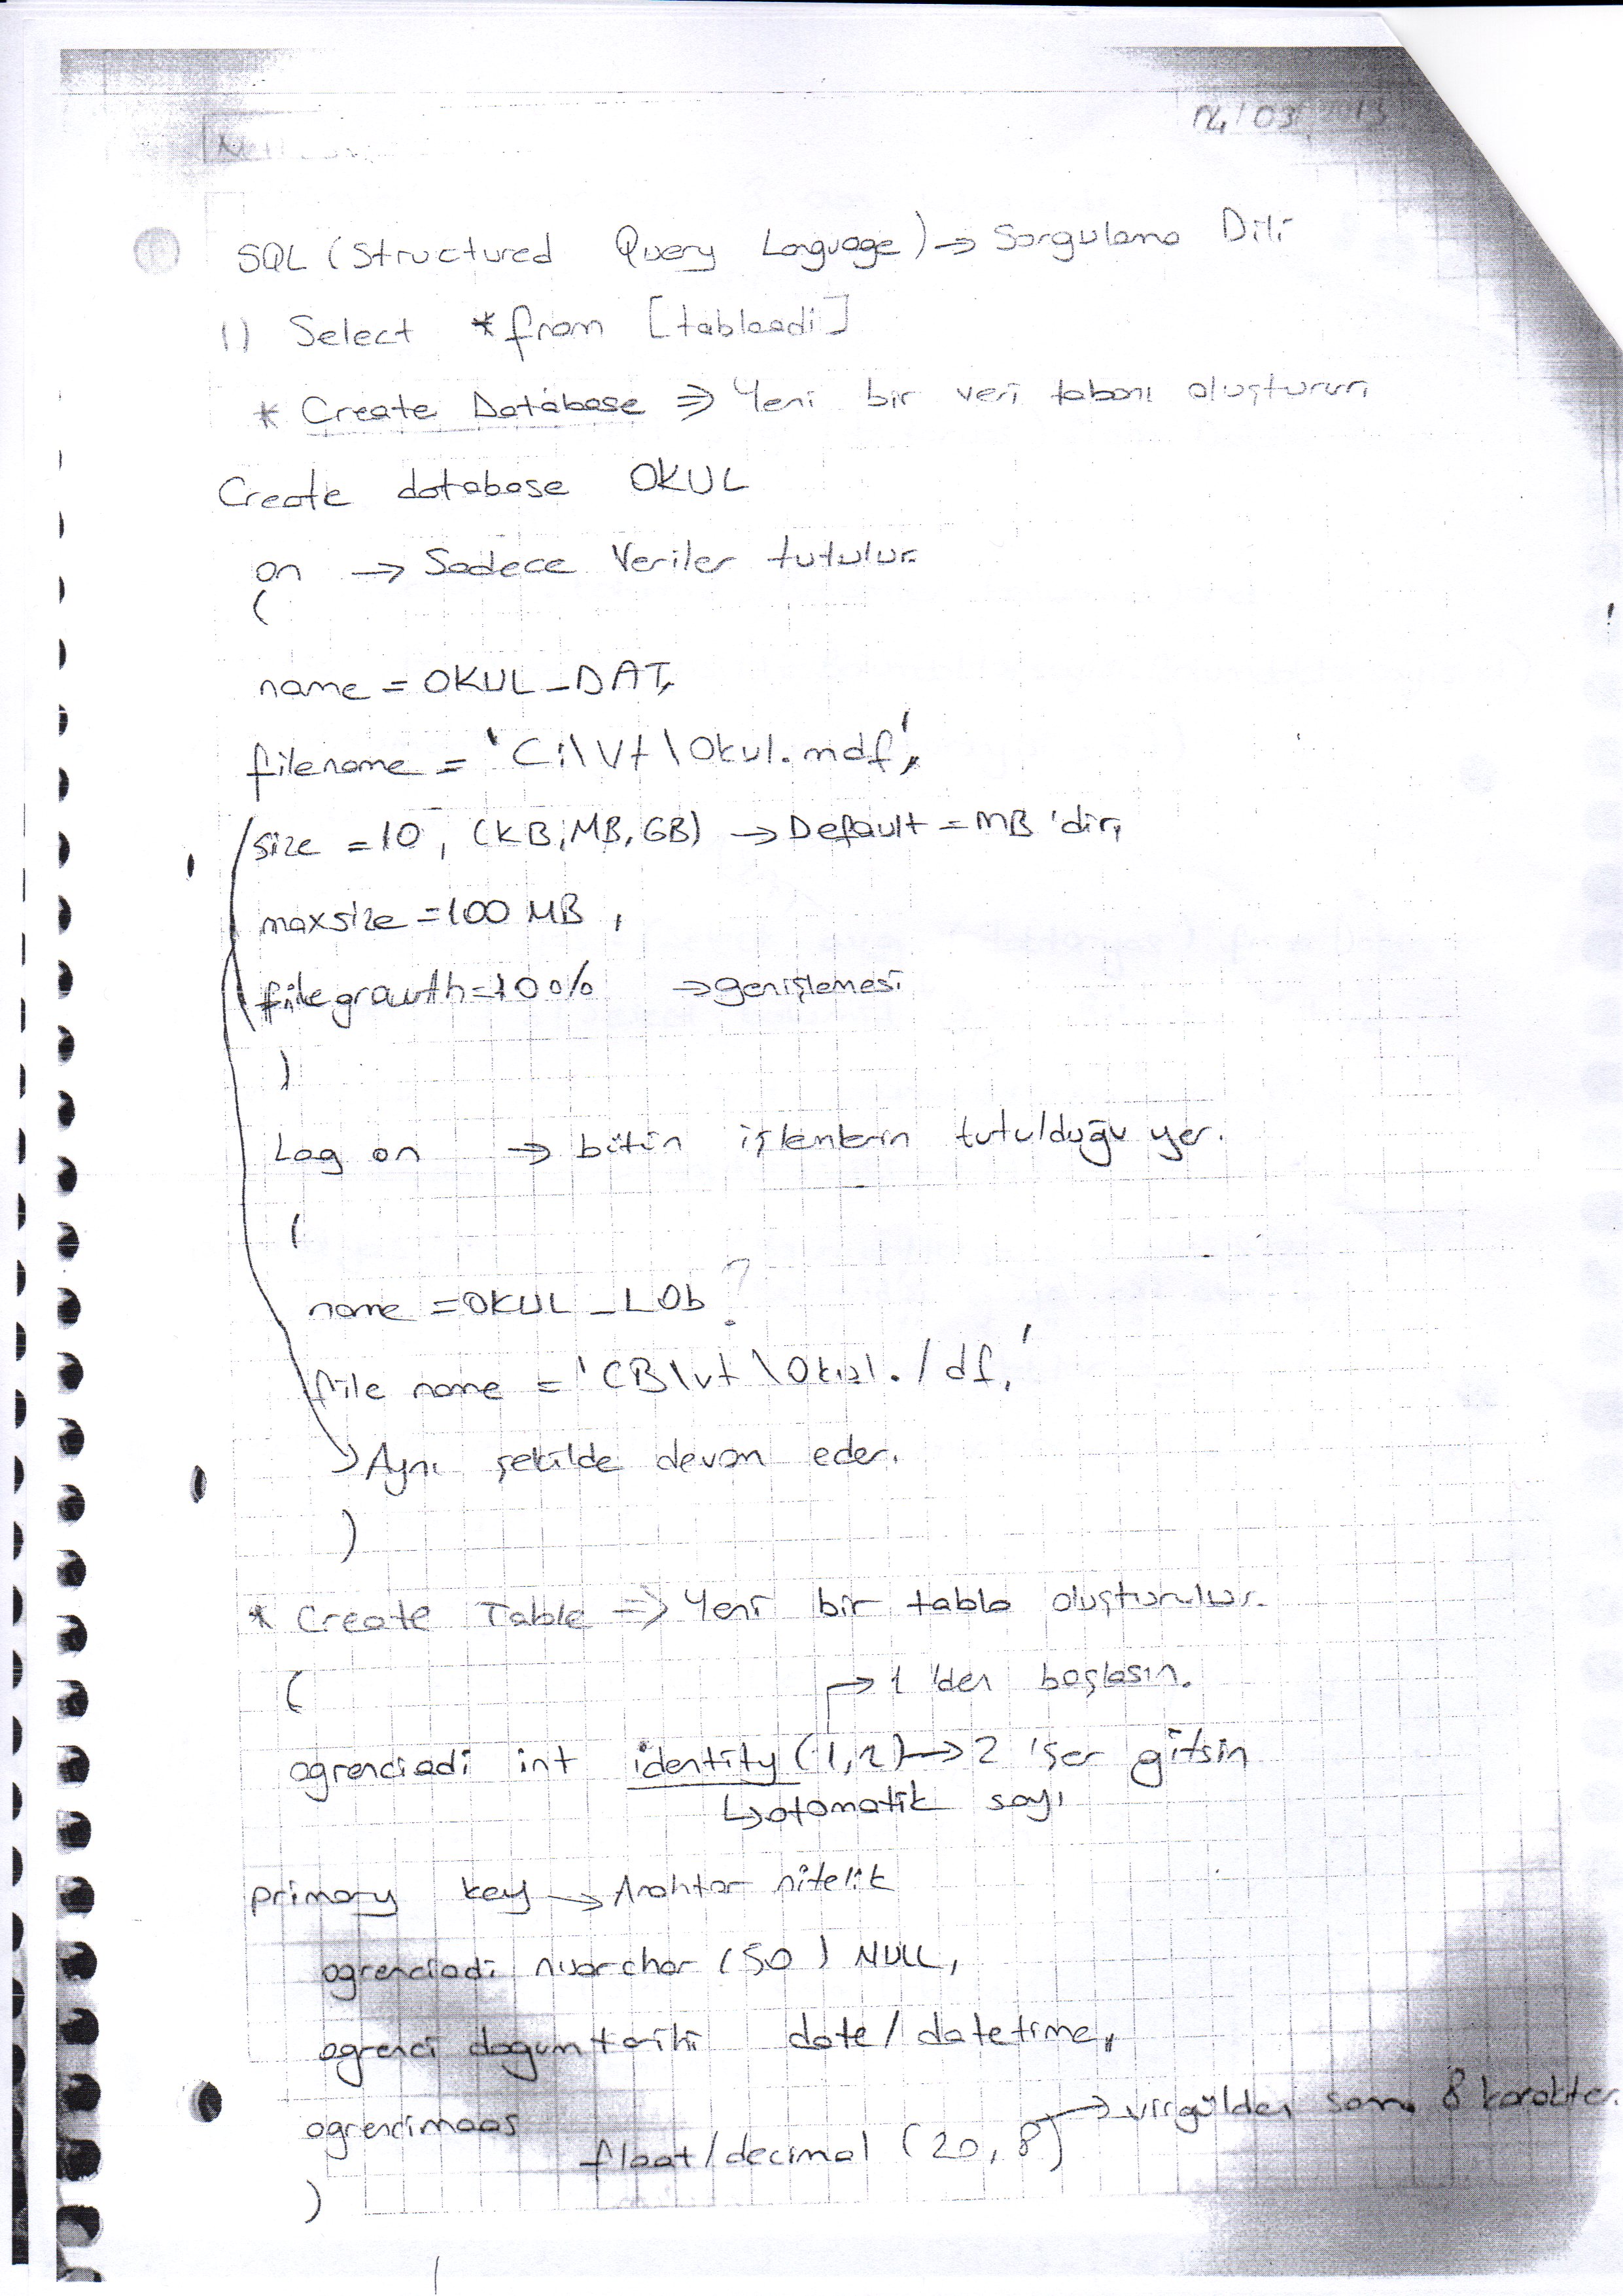 14/03/2013
SQL (Structured Query Language) → Sorgulama Dili
1) Select * from [tabloadi]
* Create Database ⇒ Yeni bir veri tabanı oluşturur.
Create database OKUL
on → Sadece Veriler tutulur.
(
name = OKUL_DAT,
filename = 'C:\Vt\Okul.mdf',
size = 10, (KB, MB, GB) → Default = MB 'dir,
maxsize = 100 MB ,
filegrowth = 10% → genişlemesi
)
Log on → bütün işlemlerin tutulduğu yer.
(
name = OKUL_LOb ?
file name = 'CB\vt\Okul./df,'
→ Aynı şekilde devam eder.
)
* Create Table ⇒ Yeni bir tablo oluşturulur.
( → 1 'den başlasın.
ogrenciadi int identity (1,2) → 2 'şer gitsin
↳ otomatik sayı
primary key → Anahtar nitelik
ogrenciadi nvarchar (50) NULL,
ogrenci dogum tarihi date/datetime,
→ virgülden sonra 8 karakter.
ogrencimaas float/decimal (20, 8)
)